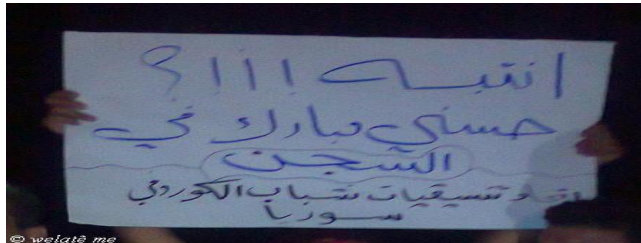 انتبه !!!؟
حسني مبارك في
السجن
اتحاد تنسيقيات شباب الكورد في
سوريا
© welatê me